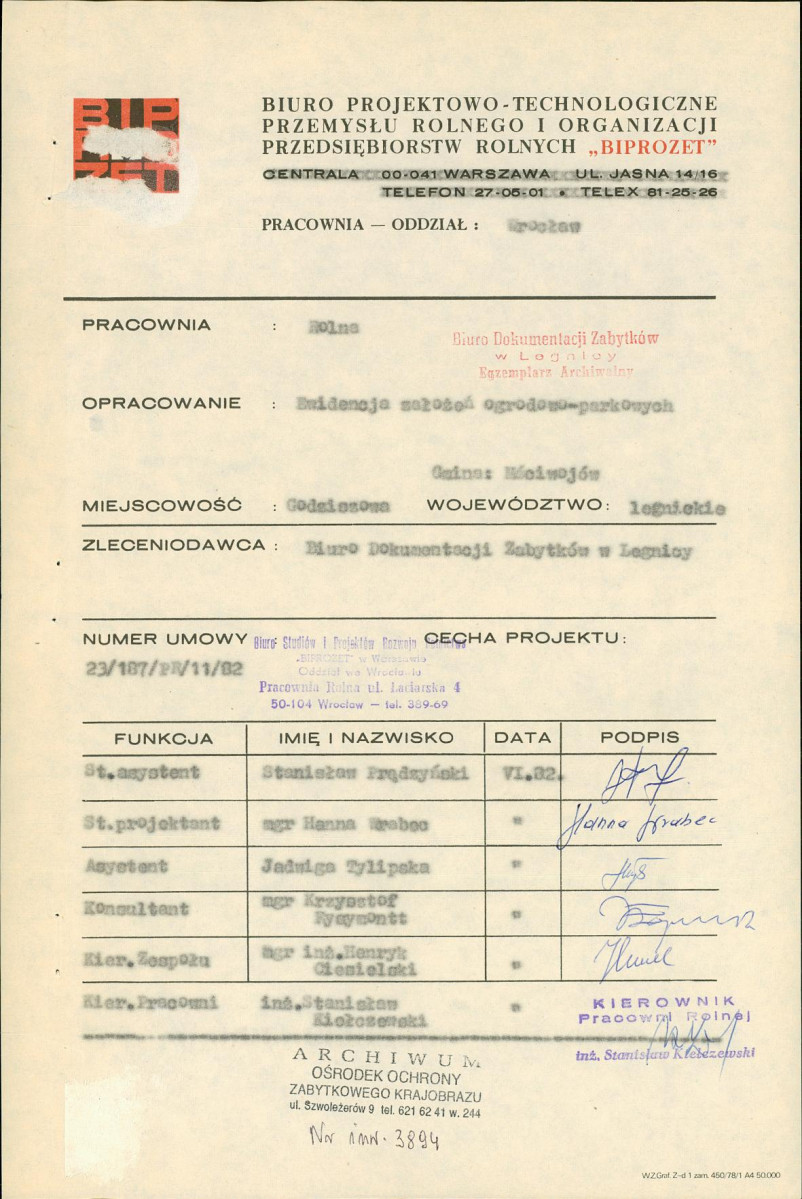 BIP
ZET
BIURO PROJEKTOWO-TECHNOLOGICZNE
PRZEMYSŁU ROLNEGO I ORGANIZACJI
PRZEDSIĘBIORSTW ROLNYCH „BIPROZET"
CENTRALA 00-041 WARSZAWA UL. JASNA 14/16
TELEFON 27-05-01 • TELEX 81-25-26
PRACOWNIA — ODDZIAŁ : Wrocław
PRACOWNIA : Rolna
Biuro Dokumentacji Zabytków
w Legnicy
Egzemplarz Archiwalny
OPRACOWANIE : Ewidencja założeń ogrodowo-parkowych
Gmina: Mściwojów
MIEJSCOWOŚĆ : Godziszowa WOJEWÓDZTWO: legnickie
ZLECENIODAWCA : Biuro Dokumentacji Zabytków w Legnicy
NUMER UMOWY CECHA PROJEKTU:
23/187/PR/11/82
Biuro Studiów i Projektów Rozwoju
„BIPROZET" w Warszawie
Oddział we Wrocławiu
Pracownia Rolna ul. Łaciarska 4
50-104 Wrocław — tel. 389-69
FUNKCJA IMIĘ I NAZWISKO DATA PODPIS
St.asystent Stanisław Prądzyński VI.82.
St.projektant mgr Hanna Grabec " Hanna Grabec
Asystent Jadwiga Tylipska "
Konsultant mgr Krzysztof
Rygymontt "
Kier.Zespołu mgr inż.Henryk
Ciesielski "
Kier.Pracowni inż.Stanisław
Kiełczewski "
KIEROWNIK
Pracowni Rolnej
inż. Stanisław Kiełczewski
ARCHIWUM
OŚRODEK OCHRONY
ZABYTKOWEGO KRAJOBRAZU
ul. Szwoleżerów 9 tel. 621 62 41 w. 244
Nr inw. 3894
W.Z.Graf. Z-d 1 zam. 450/78/1 A4 50.000